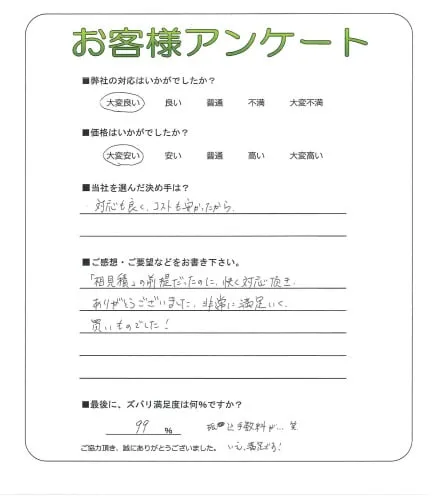 お客様アンケート
■弊社の対応はいかがでしたか？
大変良い 良い 普通 不満 大変不満
■価格はいかがでしたか？
大変安い 安い 普通 高い 大変高い
■当社を選んだ決め手は？
・対応も良く、コストも安かったから。
■ご感想・ご要望などをお書き下さい。
「相見積」の前提だったのに、快く対応頂き
ありがとうございました。非常に満足いく、
買いものでした！
■最後に、ズバリ満足度は何％ですか？
99 % 振込手数料が… 笑
ご協力頂き、誠にありがとうございました。 いえ、満足です！